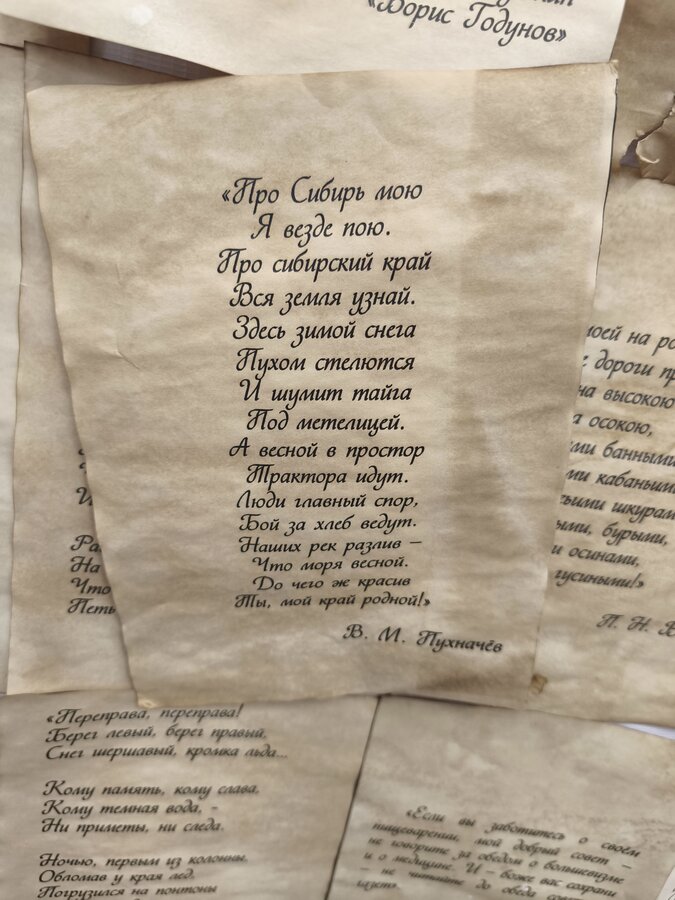 «Борис Годунов»
«Про Сибирь мою
Я везде пою.
Про сибирский край
Вся земля узнай.
Здесь зимой снега
Пухом стелются
И шумит тайга
Под метелицей.
А весной в простор
Трактора идут.
Люди главный спор,
Бой за хлеб ведут.
Наших рек разлив –
Что моря весной.
До чего ж красив
Ты, мой край родной!»
В. М. Пухначёв
И
Ра
На
Что
Петь
моей на ро
дороги пр
на высокою
осокою,
ми банными
ми кабаньими
ьими шкурам
ыми, бурыми,
и осинами,
гусиными!»
П. Н. В
«Переправа, переправа!
Берег левый, берег правый,
Снег шершавый, кромка льда...
Кому память, кому слава,
Кому темная вода, -
Ни приметы, ни следа.
Ночью, первым из колонны,
Обломав у края лед,
Погрузился на понтоны
«Если вы заботитесь о своём
пищеварении, мой добрый совет –
не говорите за обедом о большевизме
и о медицине. И – боже вас сохрани
– не читайте до обеда сов
газет».